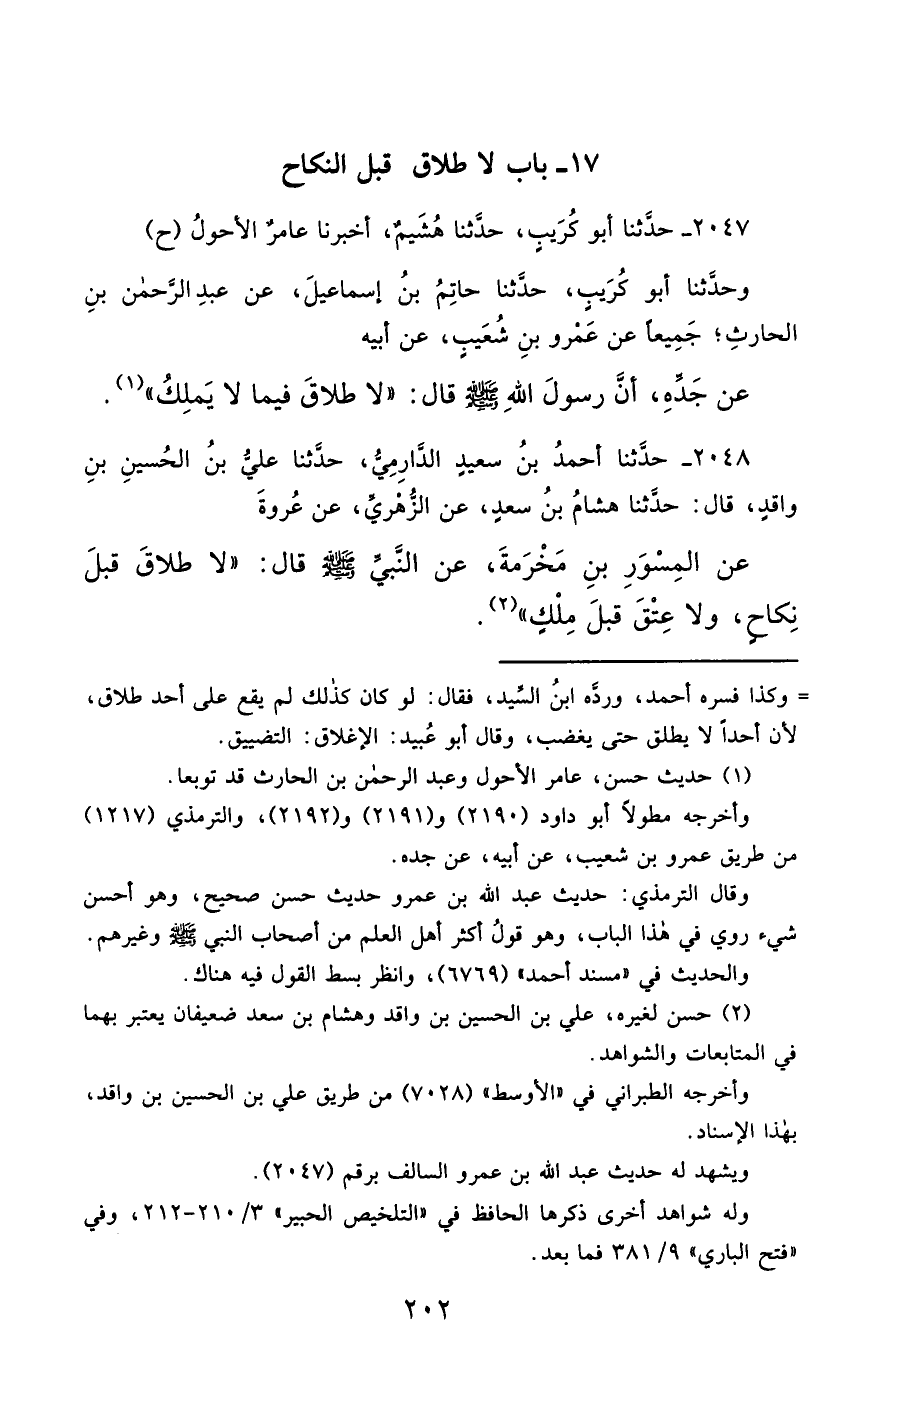 ١٧ـ باب لا طلاق قبل النكاح
٢٠٤٧ـ حدَّثنا أبو كُرَيبٍ، حدَّثنا هُشَيمٌ، أخبرنا عامرٌ الأحولُ (ح)
وحدَّثنا أبو كُرَيبٍ، حدَّثنا حاتِمُ بنُ إسماعيلَ، عن عبدِ الرَّحمٰن بنِ
الحارثِ؛ جَمِيعاً عن عَمْرو بنِ شُعَيبٍ، عن أبيه
عن جَدِّهِ، أنَّ رسولَ اللهِ ﷺ قال: «لا طلاقَ فيما لا يَملِكُ»(١).
٢٠٤٨ـ حدَّثنا أحمدُ بنُ سعيدٍ الدَّارِميُّ، حدَّثنا عليُّ بنُ الحُسينِ بنِ
واقدٍ، قال: حدَّثنا هشامُ بنُ سعدٍ، عن الزُّهْريِّ، عن عُروةَ
عن المِسْوَرِ بنِ مَخْرَمةَ، عن النَّبيِّ ﷺ قال: «لا طلاقَ قبلَ
نِكاحٍ، ولا عِتْقَ قبلَ مِلْكٍ»(٢).
= وكذا فسره أحمد، وردَّه ابنُ السِّيد، فقال: لو كان كذٰلك لم يقع على أحد طلاق،
لأن أحداً لا يطلق حتى يغضب، وقال أبو عُبيد: الإغلاق: التضييق.
(١) حديث حسن، عامر الأحول وعبد الرحمٰن بن الحارث قد توبعا.
وأخرجه مطولاً أبو داود (٢١٩٠) و(٢١٩١) و(٢١٩٢)، والترمذي (١٢١٧)
من طريق عمرو بن شعيب، عن أبيه، عن جده.
وقال الترمذي: حديث عبد الله بن عمرو حديث حسن صحيح، وهو أحسن
شيء روي في هٰذا الباب، وهو قولُ أكثر أهل العلم من أصحاب النبي ﷺ وغيرهم.
والحديث في «مسند أحمد» (٦٧٦٩)، وانظر بسط القول فيه هناك.
(٢) حسن لغيره، علي بن الحسين بن واقد وهشام بن سعد ضعيفان يعتبر بهما
في المتابعات والشواهد.
وأخرجه الطبراني في «الأوسط» (٧٠٢٨) من طريق علي بن الحسين بن واقد،
بهٰذا الإسناد.
ويشهد له حديث عبد الله بن عمرو السالف برقم (٢٠٤٧).
وله شواهد أخرى ذكرها الحافظ في «التلخيص الحبير» ٣/ ٢١٠-٢١٢، وفي
«فتح الباري» ٩/ ٣٨١ فما بعد.
٢٠٢